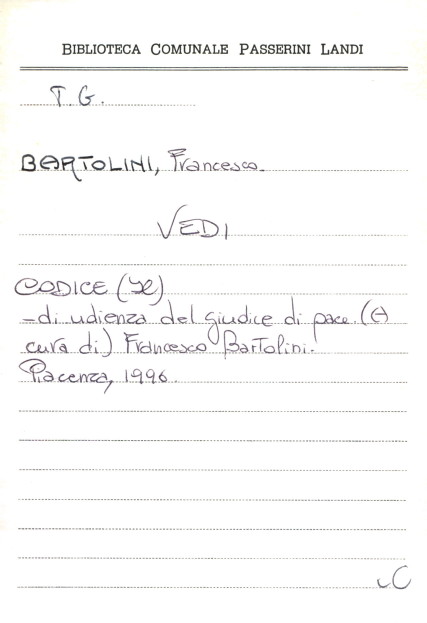 BIBLIOTECA COMUNALE PASSERINI LANDI
T. G.
BARTOLINI, Francesco.
VEDI
CODICE (Il)
-di udienza del giudice di pace. (A
cura di) Francesco Bartolini.
Piacenza, 1996.